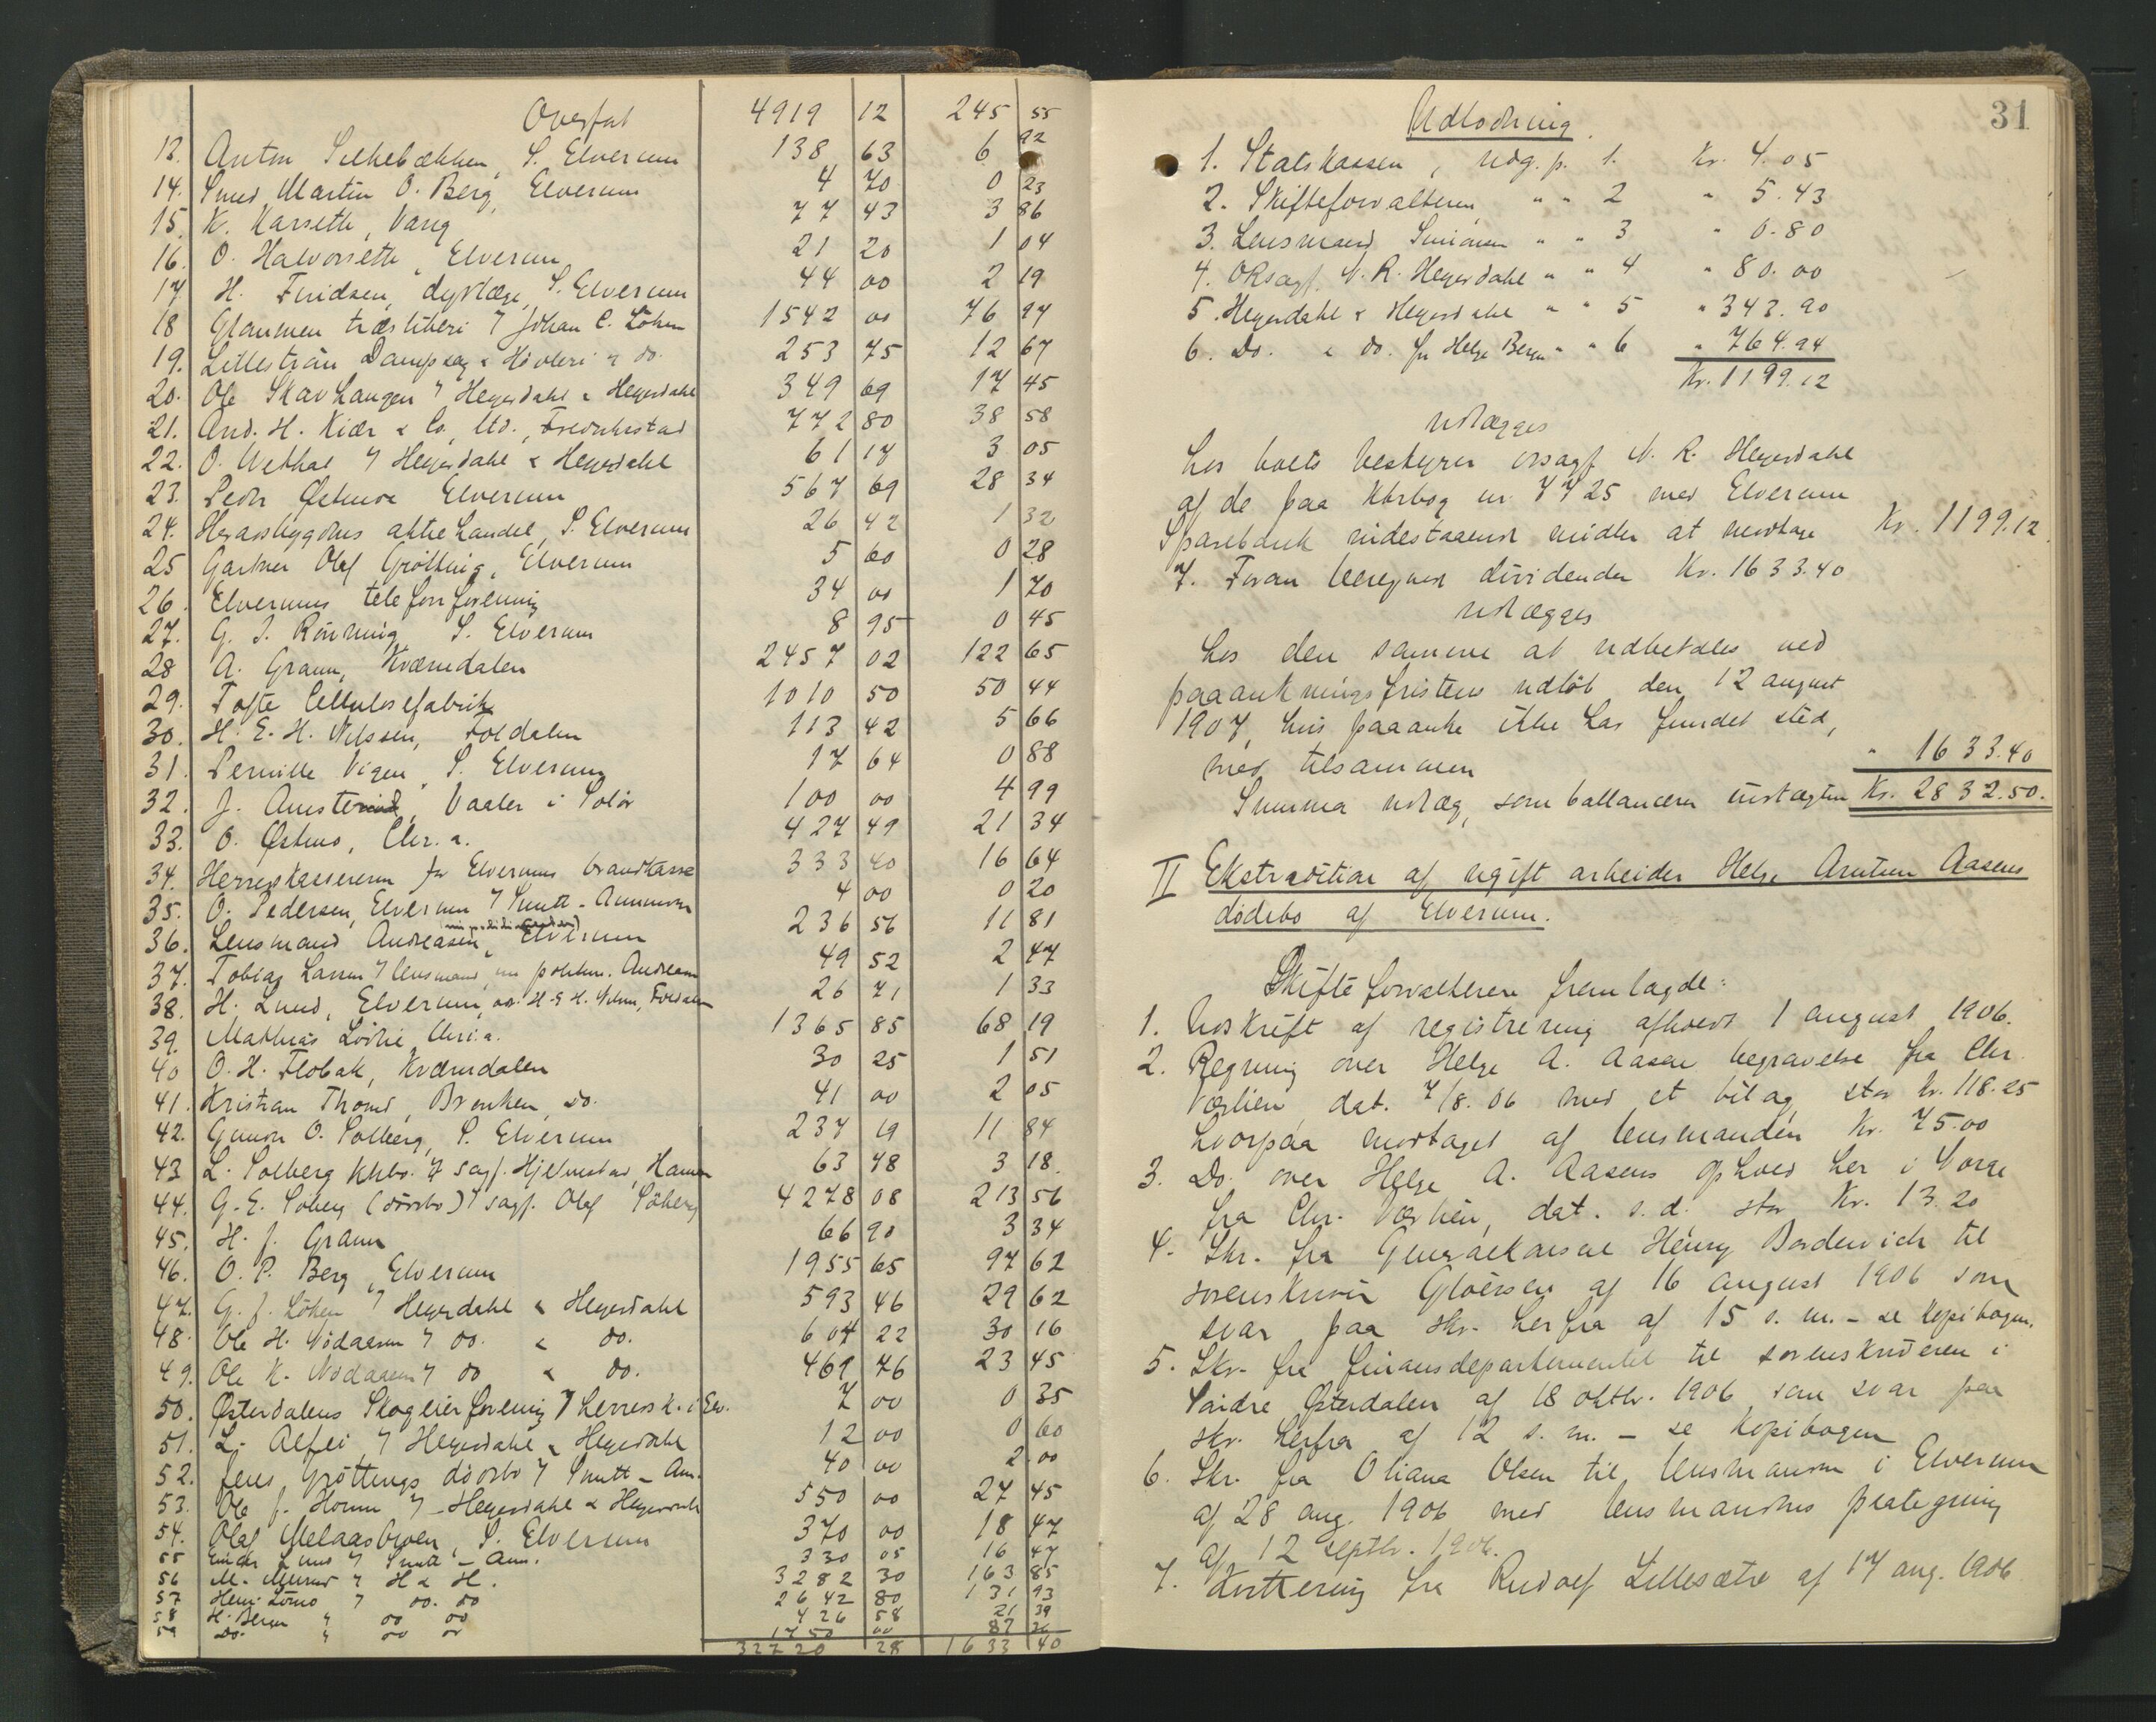 Overført 4919 12 245 55
13. Anton Silkebækken, S. Elverum 138 63 6 92
14. Smed Martin O. Berg, Elverum 4 70 0 23
15. K. Karseth, Vang 77 43 3 86
16. O. Halvorseth, Elverum 21 20 1 04
17 H. Finidsen, dyrlæge, S. Elverum 44 00 2 19
18 Glommen træsliberi 7 Johan C. Løken 1542 00 76 97
19. Lillestrøm Dampsag & Høvleri 7 do. 253 75 12 67
20. Ole Skavhaugen 7 Heyerdahl & Heyerdahl 349 69 17 45
21. And. H. Kiær & Co. ltd., Fredrikstad 772 80 38 58
22. O. Uethal 7 Heyerdahl & Heyerdahl 61 17 3 05
23. Peder Østmoe Elverum 567 69 28 34
24. Heradsbygdens aktiehandel, S. Elverum 26 42 1 32
25 Gartner Olaf Grøtting, Elverum 5 60 0 28
26. Elverums telefonforening 34 00 1 70
27. G. J. Rønning, S. Elverum 8 95 0 45
28 A. Gram, Kværndalen 2457 02 122 65
29. Tofte Cellulosefabrik 1010 50 50 44
30. H. E. H. Nilssen, Foldalen 113 42 5 66
31. Pernille Vigen, S. Elverum 17 64 0 88
32. J. Amsterud, Vaaler i Solør 100 00 4 99
33. O. Østmo, Chr.a. 427 49 21 34
34. Herredskassereren for Elverums brandkasse 333 40 16 64
35. O. Pedersen, Elverum 7 Smitt-Ammesen 4 00 0 20
36. Lensmand Andreasen, Elverum 236 56 11 81
37. Tobias Larsen 7 lensmand, nu politim. Andreasen 49 52 2 47
38. H. Lund, Elverum, 00. H. E. H. Nilsen, Foldalen 26 71 1 33
39. Mathias Lørlie, Chri.a. 1365 85 68 19
40 O. H. Flobak, Kværndalen 30 25 1 51
41. Kristian Thoms, Brenken, do. 41 00 2 05
42. Gunder O. Solberg, S. Elverum 237 19 11 84
43 L. Solberg kkbo. 7 sagf. Hjelmstad, Hamar 63 48 3 18.
44. G. E. Søberg (dødsbo) 7 sagf. Olaf Søberg 4278 08 213 56
45. H. J. Gram 66 90 3 34
46. O. P. Berg, Elverum 1955 65 97 62
47. G. J. Løken 7 Heyerdahl & Heyerdahl 593 46 29 62
48. Ole H. Nödaasen 7 do. & do. 604 22 30 16
49. Ole K. Nödaasen 7 do & do. 469 76 23 45
50. Østerdalens Skogeierforening 7 herredsk. i Elv. 7 00 0 35
51. L. Alfei 7 Heyerdahl & Heyerdahl 12 00 0 60
52. Jens Grøttings dødsbo 7 Smitt-Am. 40 00 2 00
53. Ole J. Hornm 7 Heyerdahl & Heyerdahl 550 00 27 45
54. Olaf Melaasbroen, S. Elverum 370 00 18 47
55 Einar Lund 7 Smitt-Am. 330 05 16 47
56 M. 7 H & H. 3282 30 163 85
57 Henr. Lömo 7 do. do 2642 80 131 93
58 H. Berer 7 do do 426 58 21 39
59 Do. 7 do do 1750 00 87 36
327 20 28 1633 40
31
Udlodning.
1. Statskassen, udg. p. 1. Kr. 4.05
2. Skifteforvalteren " " 2 " 5.43
3. Lensmand Simonsen " " 3 " 0.80
4. Oksagf. N. R. Heyerdahl " " 4 " 80.00
5. Heyerdahl & Heyerdahl " " 5 " 343.90
6. Do. & do. for Helge Berger " " 6 " 764.94
Kr. 1199.12
udlægges
hos boets bestyrer orsagf N. R. Heyerdahl
af de paa Kbrbog nr. 7725 med Elverum
Sparebank indestaaende midler at modtage Kr. 1199.12.
7. Foran beregned dividender Kr. 1633.40
udlægges
hos den samme at udbetales ved
paaankningsfristens udløb den 12 august
1907, hvis paaanke ikke har fundet sted,
med tilsammen " 1633.40
Summa udlæg, som ballancerer indtægten Kr. 2832.50.
II Ekstradition af ugift arbeider Helge Arntsen Aasens
dødsbo af Elverum.
Skifteforvalteren fremlagde:
1. Udskrift af registrering afholdt 1 august 1906.
2. Regning over Helge A. Aasens begravelse fra Chr.
Værlien, dat. 7/8. 06 med et bilag, stor Kr. 118.25
hvorpaa modtaget af lensmanden Kr. 75.00
3. Do. over Helge A. Aasens ophold her i Norge
fra Chr. Værlien, dat. s. d. stor Kr. 13.20
4. Skr. fra Generalkonsul Henry Bordewich til
sorenskriver Gløersen af 16 august 1906 som
svar paa skr. herfra af 15 s. m. - se Kopibogen.
5. Skr. fra finansdepartementet til sorenskriveren i
Søndre Østerdalen af 18 oktbr. 1906 som svar paa
skr. herfra af 12 s. m. - se Kopibogen
6. Skr. fra Oliana Olsen til lensmanden i Elverum
af 28 aug. 1906 med lensmandens paategning
af 12 septbr. 1906.
7. Kvittering fra Rudolf Lillesæter af 17 aug. 1906